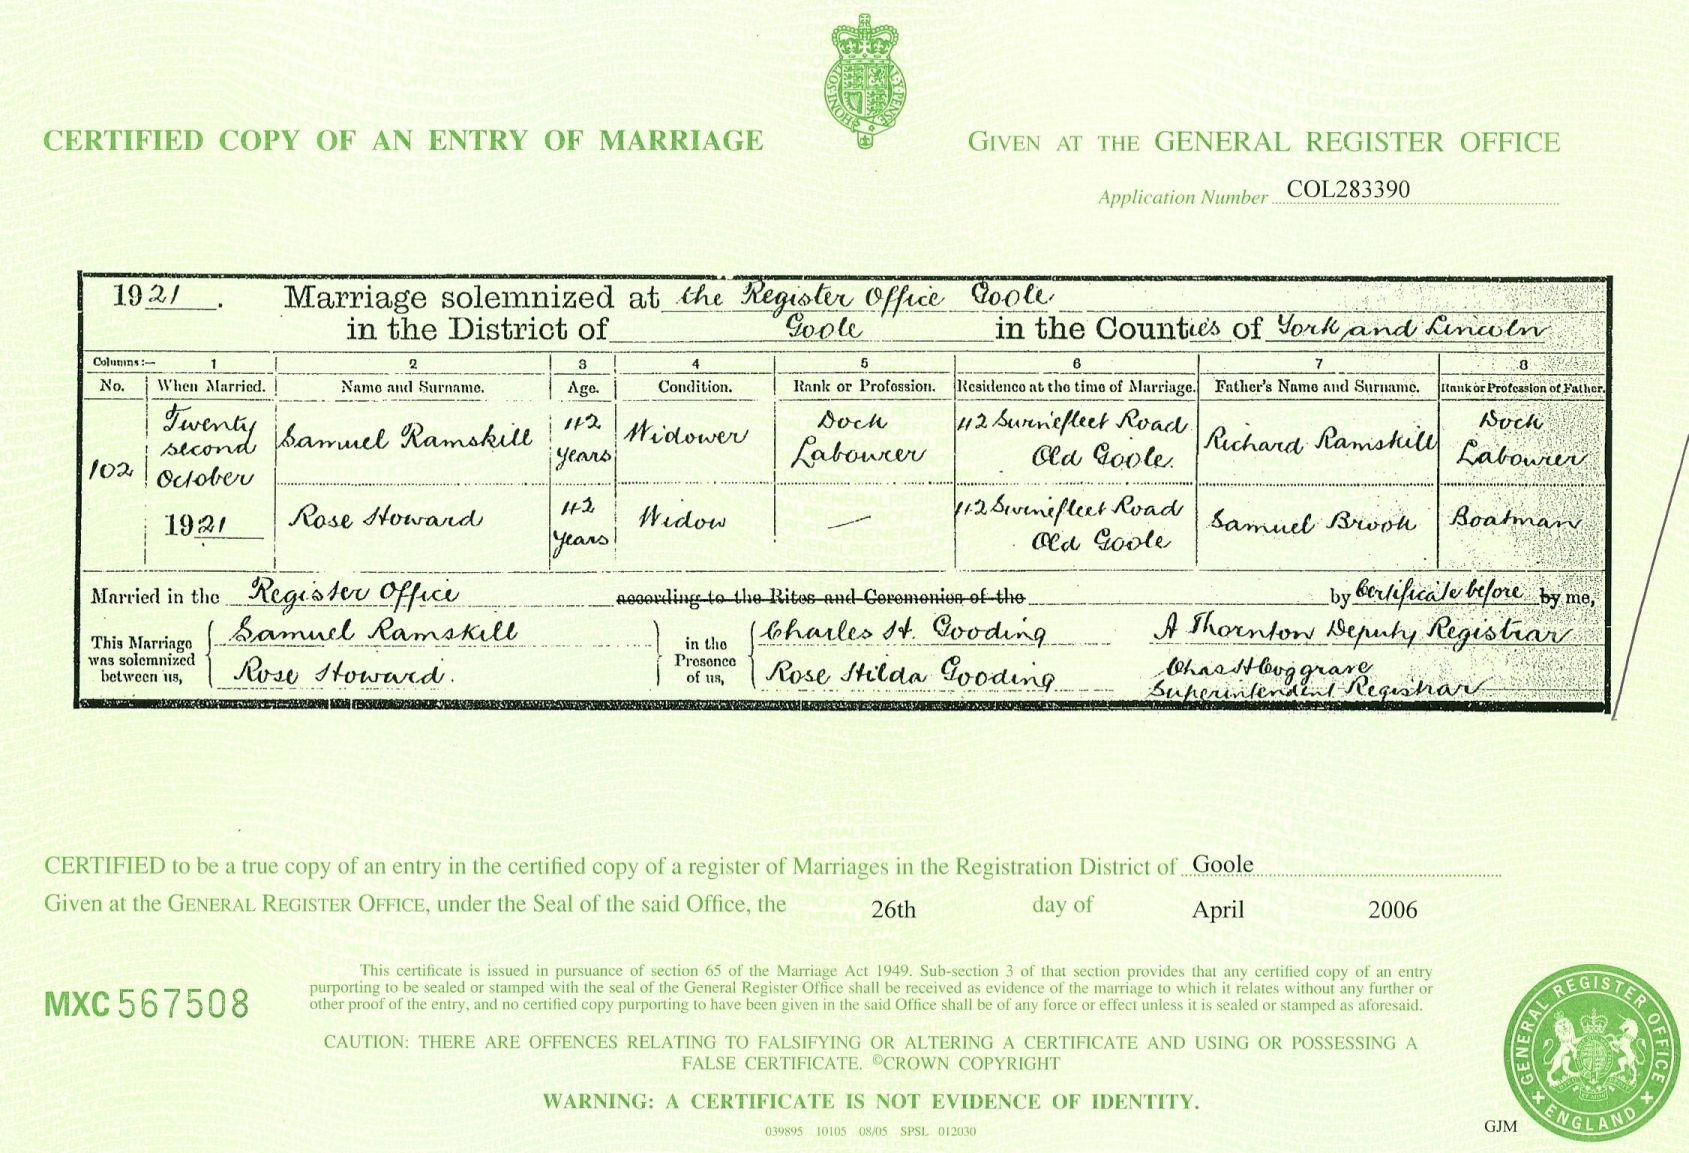 HONI·SOIT QUI MAL·Y·PENSE
CERTIFIED COPY OF AN ENTRY OF MARRIAGE
GIVEN AT THE GENERAL REGISTER OFFICE
Application Number COL283390
1921. Marriage solemnized at the Register Office Goole
in the District of Goole in the Counties of York and Lincoln
Columns:— 1 2 3 4 5 6 7 8
No. When Married. Name and Surname. Age. Condition. Rank or Profession. Residence at the time of Marriage. Father's Name and Surname. Rank or Profession of Father.
102 Twenty second October 1921
Samuel Ramskill 42 years Widower Dock Labourer 42 Swinefleet Road Old Goole. Richard Ramskill Dock Labourer
Rose Howard 42 years Widow — 42 Swinefleet Road Old Goole Samuel Brook Boatman
Married in the Register Office according to the Rites and Ceremonies of the by Certificate before by me,
This Marriage was solemnized between us,
Samuel Ramskill
Rose Howard.
in the Presence of us,
Charles H. Gooding
Rose Hilda Gooding
A Thornton Deputy Registrar
Chas H Coggrave
Superintendent Registrar
CERTIFIED to be a true copy of an entry in the certified copy of a register of Marriages in the Registration District of Goole
Given at the GENERAL REGISTER OFFICE, under the Seal of the said Office, the 26th day of April 2006
This certificate is issued in pursuance of section 65 of the Marriage Act 1949. Sub-section 3 of that section provides that any certified copy of an entry
purporting to be sealed or stamped with the seal of the General Register Office shall be received as evidence of the marriage to which it relates without any further or
other proof of the entry, and no certified copy purporting to have been given in the said Office shall be of any force or effect unless it is sealed or stamped as aforesaid.
MXC 567508
CAUTION: THERE ARE OFFENCES RELATING TO FALSIFYING OR ALTERING A CERTIFICATE AND USING OR POSSESSING A
FALSE CERTIFICATE. ©CROWN COPYRIGHT
WARNING: A CERTIFICATE IS NOT EVIDENCE OF IDENTITY.
039895 10105 08/05 SPSL 012030
GJM
GENERAL REGISTER OFFICE
ENGLAND